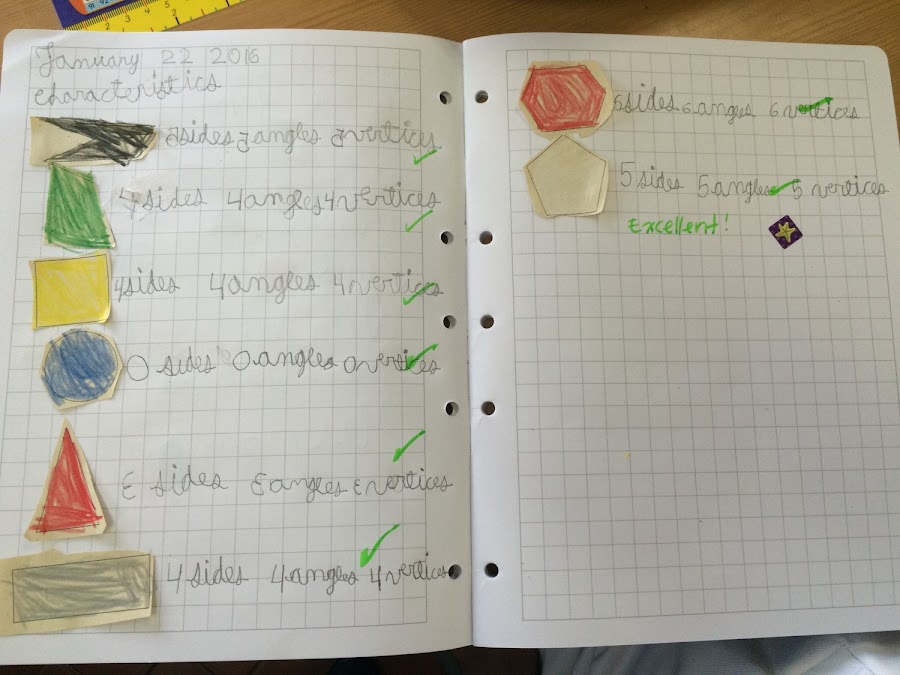 2 3 4 5
January 22 2016
characteristics
sides angles vertices
4 sides 4 angles 4 vertices
4 sides 4 angles 4 vertices
0 sides 0 angles 0 vertices
3 sides 3 angles 3 vertices
4 sides 4 angles 4 vertices
6 sides 6 angles 6 vertices
5 sides 5 angles 5 vertices
Excellent!